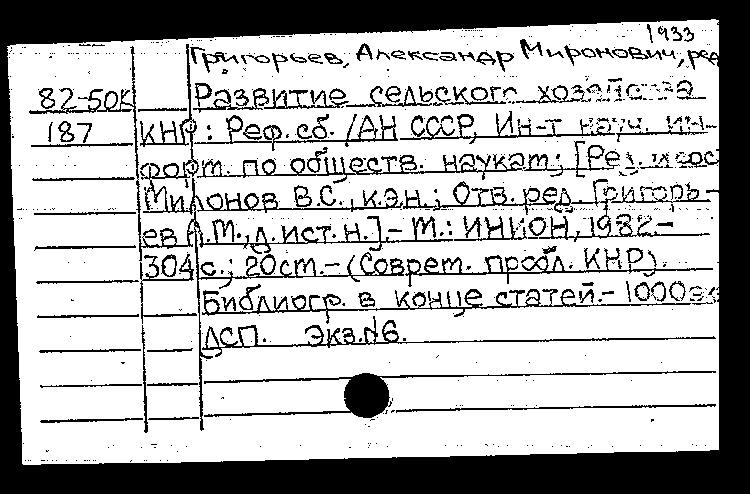 1933
Григорьев, Александр Миронович, ред
82-50К Развитие сельского хозяйства
187 КНР: Реф. сб. /АН СССР, Ин-т науч. ин-
форм. по обществ. наукам; [Ред. и сос
Милонов В.С., к.э.н.; Отв. ред. Григорь-
ев А.М., д. ист. н.].- М.: ИНИОН, 1982.-
304 с.; 20см.- (Соврем. пробл. КНР).
Библиогр. в конце статей.- 1000 эк
ДСП. Экз.№6.